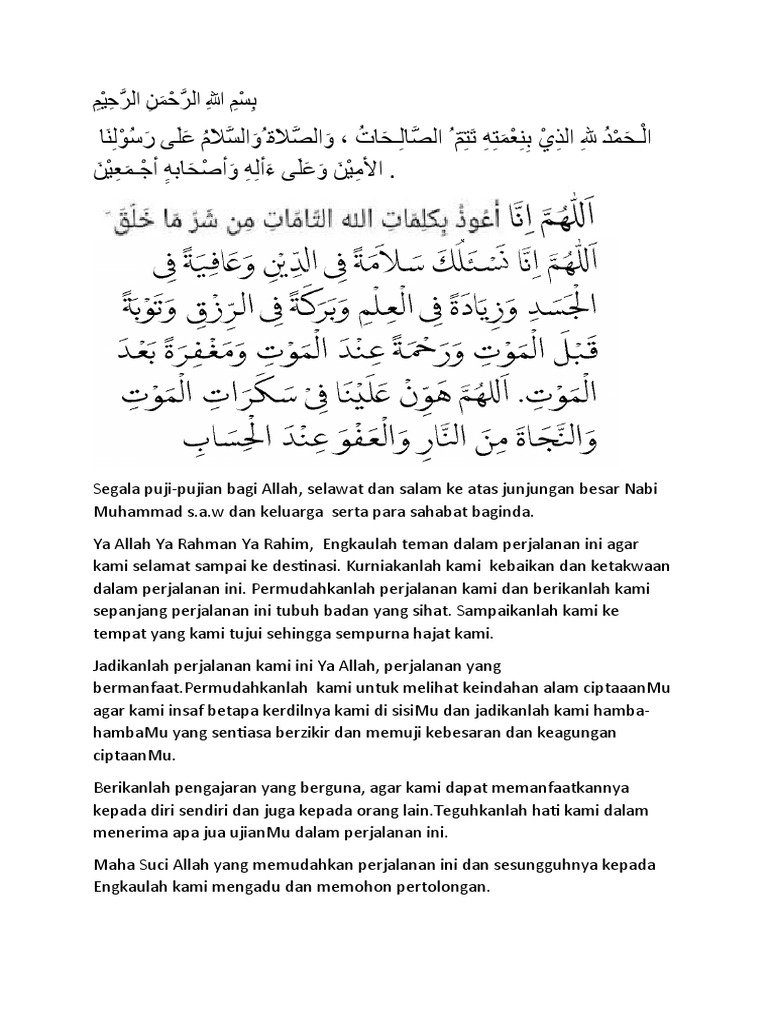 بِسْمِ اللهِ الرَّحْمَنِ الرَّحِيْمِ
الْـحَمْدُ للهِ الذِيْ بِنِعْمَتِهِ تَتِمّ ُ الصَّالِـحَاتُ ، وَالصَّلاة ُوَالسَّلامُ عَلَى رَسُوْلِنَا
الأمِيْنَ وَعَلَى ءَألِهِ وَأصْحَابهٍ أجْـمَعِيْنَ .
اَللّٰهُمَّ اِنَّا أعُوذُ بِكلِمَاتِ الله التّامّاتِ مِن شَرّ مَا خَلَقَ
اَللّٰهُمَّ اِنَّا نَسْـَٔلُكَ سَلاَمَةً فِى الدِّيْنِ وَعَافِيَةً فِى
الْجَسَدِ وَزِيَادَةً فِى الْعِلْمِ وَبَرَكَةً فِى الرِّزْقِ وَتَوْبَةً
قَبْلَ الْمَوْتِ وَرَحْمَةً عِنْدَ الْمَوْتِ وَمَغْفِرَةً بَعْدَ
الْمَوْتِ. اَللهُمَّ هَوِّنْ عَلَيْنَا فِىْ سَكَرَاتِ الْمَوْتِ
وَالنَّجَاةَ مِنَ النَّارِ وَالْعَفْوَ عِنْدَ الْحِسَابِ
Segala puji-pujian bagi Allah, selawat dan salam ke atas junjungan besar Nabi
Muhammad s.a.w dan keluarga  serta para sahabat baginda.
Ya Allah Ya Rahman Ya Rahim,  Engkaulah teman dalam perjalanan ini agar
kami selamat sampai ke destinasi. Kurniakanlah kami  kebaikan dan ketakwaan
dalam perjalanan ini. Permudahkanlah perjalanan kami dan berikanlah kami
sepanjang perjalanan ini tubuh badan yang sihat. Sampaikanlah kami ke
tempat yang kami tujui sehingga sempurna hajat kami.
Jadikanlah perjalanan kami ini Ya Allah, perjalanan yang
bermanfaat.Permudahkanlah  kami untuk melihat keindahan alam ciptaaanMu
agar kami insaf betapa kerdilnya kami di sisiMu dan jadikanlah kami hamba-
hambaMu yang sentiasa berzikir dan memuji kebesaran dan keagungan
ciptaanMu.
Berikanlah pengajaran yang berguna, agar kami dapat memanfaatkannya
kepada diri sendiri dan juga kepada orang lain.Teguhkanlah hati kami dalam
menerima apa jua ujianMu dalam perjalanan ini.
Maha Suci Allah yang memudahkan perjalanan ini dan sesungguhnya kepada
Engkaulah kami mengadu dan memohon pertolongan.